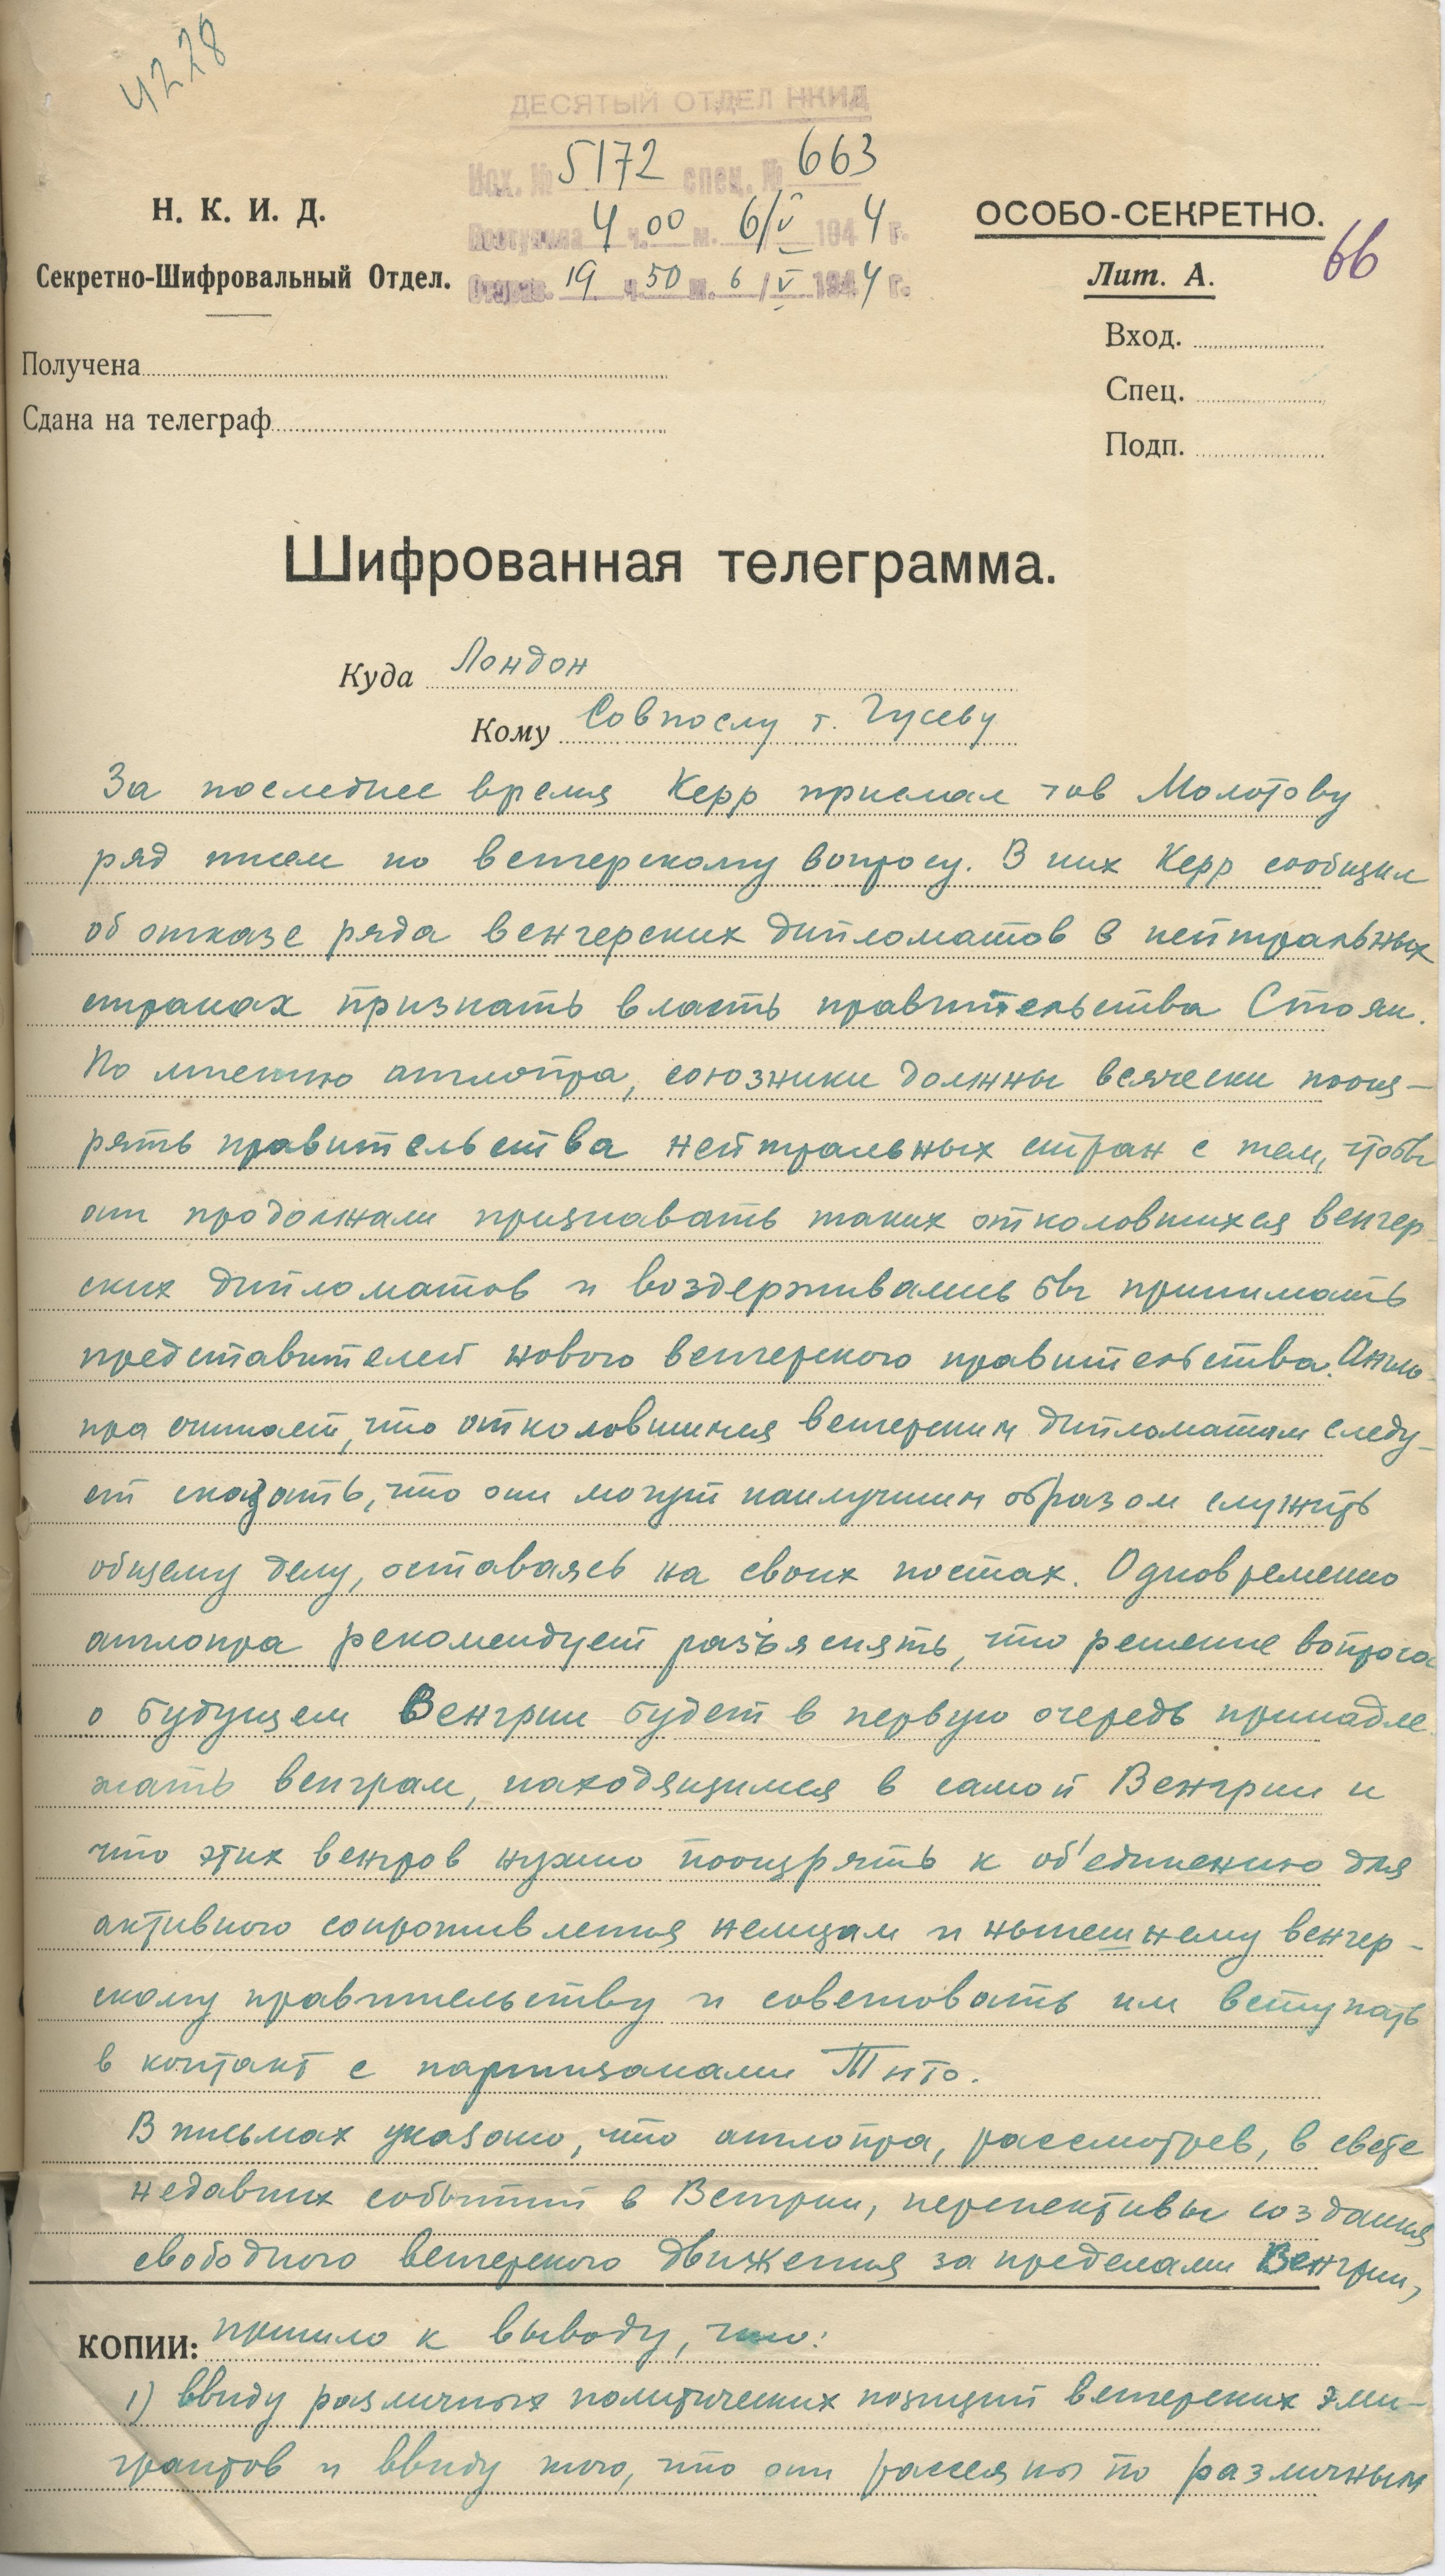 4228
ДЕСЯТЫЙ ОТДЕЛ НКИД
Исх. № 5172 спец. № 663
Поступила 4 ч. 00 м. 6/V 1944 г.
Отправ. 19 ч. 50 м. 6/V 1944 г.
Н. К. И. Д.
Секретно-Шифровальный Отдел.
ОСОБО-СЕКРЕТНО.
66
Лит. А.
Вход.
Спец.
Подп.
Получена
Сдана на телеграф
Шифрованная телеграмма.
Куда Лондон
Кому Совпослу т. Гусеву
За последнее время Керр прислал тов Молотову
ряд писем по венгерскому вопросу. В них Керр сообщил
об отказе ряда венгерских дипломатов в нейтральных
странах признать власть правительства Стояи.
По мнению англопра, союзники должны всячески поощ-
рять правительства нейтральных стран с тем, чтобы
они продолжали признавать таких отколовшихся венгер-
ских дипломатов и воздерживались бы принимать
представителей нового венгерского правительства. Англо-
пра считает, что отколовшимся венгерским дипломатам следу-
ет сказать, что они могут наилучшим образом служить
общему делу, оставаясь на своих постах. Одновременно
англопра рекомендует разъяснять, что решение вопроса
о будущем Венгрии будет в первую очередь принадле-
жать венграм, находящимся в самой Венгрии и
что этих венгров нужно поощрять к об'единению для
активного сопротивления немцам и нынешнему венгер-
скому правительству и советовать им вступать
в контакт с партизанами Тито.
В письмах указано, что англопра, рассмотрев, в свете
недавних событий в Венгрии, перспективы создания
свободного венгерского движения за пределами Венгрии,
КОПИИ: пришло к выводу, что:
1) ввиду различных политических позиций венгерских эми-
грантов и ввиду того, что они рассеяны по различным